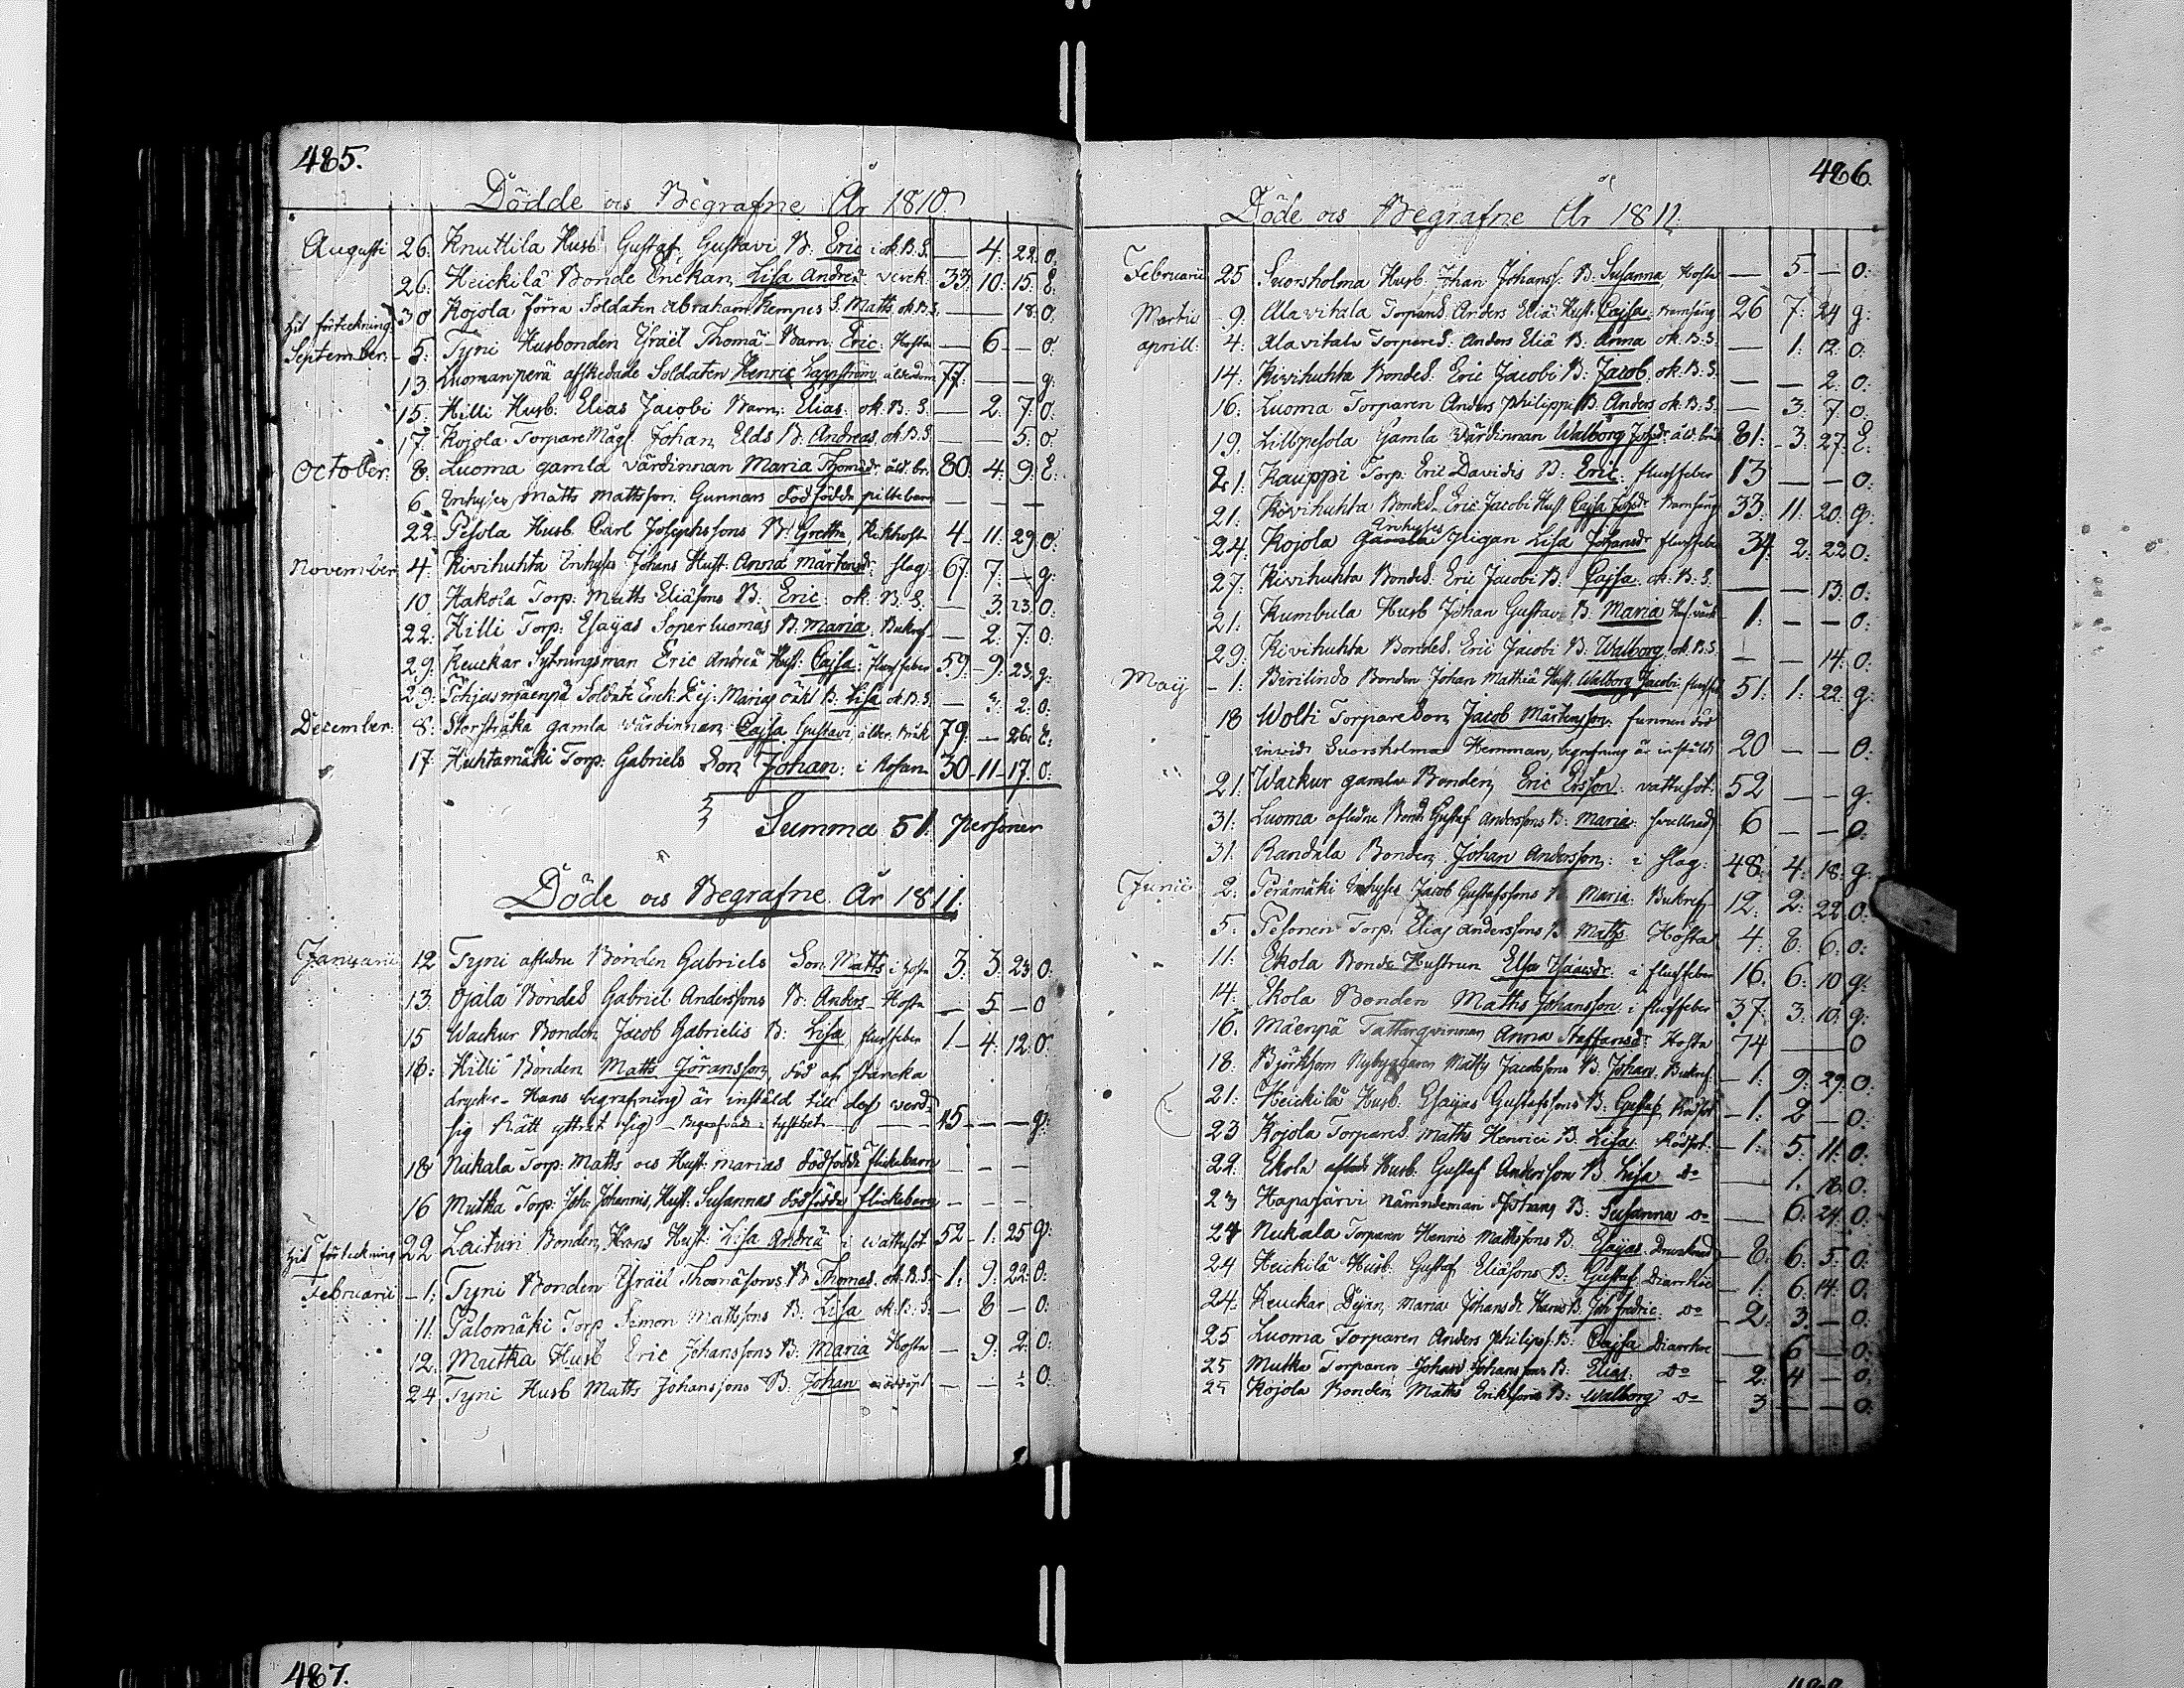 485.
Dödde och Begrafne År 1810.
Augusti 26. Knuttila Husb: Gustaf Gustavi B: Eric i ok. B. S. — 4. 22. o.
26. Heickilä Bonde Enckan Lisa Andreæ verck. 33. 10. 15. E.
30 Kojola förra Soldaten Abraham Kempes S. Matts ok. B. S. — — 18. o.
hit förteckning
September. 5. Tyni Husbonden Israël Thomæ Barn: Eric. Hosta — 6 — o.
13. Luomanperä afskedade Soldaten Henric Lappström ålderdom 77. — — g.
15. Hilli Husb: Elias Jacobi Barn: Elias: ok. B. S. — 2. 7. o.
17. Kojola Torpare Måg. Johan Elds B: Andreas. ok. B. S. — — 5. o.
October. 8. Luoma gamla värdinnan Maria Thomædr. åld. br. 80. 4. 9. E.
6. Inhyses Matts Mattsson Gunnars dödfödda piltebarn — — —
22. Pesola Husb. Carl Josephssons B: Gretha Kikhosta 4. 11. 29. o.
November 4. Kivihuhta Inhyses Johans Hust: Anna Mårtensdr. slag. 67. 7. — g.
10. Hakola Torp: Matts Eliæsons B: Eric. ok. B. S. — 3. 23. o.
22. Hilli Torp: Esaias Soperluomas B: Maria. Bukref — 2. 7. o.
29. Keuckar Sytningsman Eric Andreæ Hust: Cajsa: flussfeber 59. 9. 23. g.
29. Pohjasmäenpä Soldate Enck. Pig. Marias oächt B: Lisa ok. B. S. — 3. 2. o.
December. 8. Storstråka gamla värdinnan Cajsa Gustavi, ålder. Bräck 79. — 26. E.
17. Huhtamäki Torp: Gabriels Son Johan: i Rosen 30. 11. 17. o.
Summa 51. Personer
Döde och Begrafne År 1811.
Januarii 12 Tyni afledne Bonden Gabriels Son Matts i hosta 3. 3. 23. o.
13. Ojala Bondes Gabriel Anderssons B: Anders. Hosta — 5 — o
15 Wackur Bonden Jacob Gabrielis B: Lisa flussfeber 1. 4. 12. o.
18. Hilli Bonden Matts Jöransson, död af starcka
drycker. Hans begrafning är instäld till dess verd-
sig Rätt yttrat sig. Begrafvades i tysthet — — 45. — — g.
18 Nikala Torp: Matts och Hust: Marias dödfödda flickebarn — — —
16 Mutka Torp: Joh: Johannis Hust: Susannas dödfödda flickebarn — — —
22 Laituri Bonden Hans Hust: Lisa Andreæ i wattusot 52. 1. 25. g.
hit förteckning
Februarii 1. Tyni Bonden Israël Thomæsons B: Thomas. ok. B. S. 1. 9. 22. o.
11. Palomäki Torp Simon Mattsons B: Lisa ok. B. S. — 8 — o.
12. Mutka Husb Eric Johanssons B: Maria Hosta — 9. 2. o.
24 Tyni Husb Matts Johanssons B: Johan nöddöpt — — ½ o.
486.
Döde och Begrafne År 1811.
Februarii 25 Suorsholma Husb: Johan Johanss: B: Susanna, Hosta — 5 — o.
Martii 9. Alavitala Torpares Anders Eliæ Hust: Cajsa: Barnsäng 26 7. 24 g.
Aprill. 4. Alavitala Torpares: Anders Eliæ B: Anna ok. B. S. — 1. 12. o.
14. Kivihuhta Bondes: Eric Jacobi B: Jacob. ok. B. S. — — 2. o.
16. Luoma Torparen Anders Philippi B. Anders ok. B. S. — 3. 7. o.
19. Lillpesola Gamla Värdinnan Walborg Johdr. åld. bräck 81. 3. 27. E.
21. Kauppi Torp: Eric Davidis B: Eric. flussfeber 13 — — o.
21. Kivihuhta Bondes Eric Jacobi Hust. Cajsa Johdr. Barnsäng 33. 11. 20. g.
24. Kojola Inhyses Pigan Lisa Johansdr flussfeber 34. 2. 22 o.
27. Kivihuhta Bondes: Eric Jacobi B: Cajsa. ok. B. S. — — 13. o.
21. Kumbula Husb Johan Gustavi B: Maria 1. — — o.
29. Kivihuhta Bondes: Eric Jacobi B: Walborg. ok. B. S. — — 14. o.
Maij 1. Birilindo Bonden Johan Mathiæ Hust. Walborg Jacobi flussfeber 51. 1. 22. g.
18 Wolti Torpare Son Jacob Mårtensson. funnen död
invid Suorsholma Hemman, begrafning är instäld 20 — — o.
21. Wackur gamla Bonden Eric Ersson. vattusot. 52 — — g.
31. Luoma afledne Bond. Gustaf Anderssons B: Maria. svullnad 6 — — o.
31. Randala Bonden Johan Andersson: i slag: 48. 4. 18. g.
Junii 2. Perämäki Inhyses Jacob Gustafssons B. Maria. Bukref 12. 2. 22. o.
5. Pesonen Torp: Elias Anderssons B Matts. Hosta 4. 8. 6. o.
11. Ekola Bonde Hustrun Elsa Isaacsdr. i flussfeber 16. 6. 10 g.
14. Ekola Bonden Matts Johansson i flussfeber 37. 3. 10. g.
16. Mäenpä Tattarqvinnan Anna Staffansd: Hosta 74 — — o
18. Björkbom Nybyggaren Matts Jacobssons B. Johan. Bukref. 1. 9. 29. o.
21. Heickilä Husb. Esaias Gustafssons B: Gustaf. Rödsot 1. 2 — o.
23 Kojola Torpares Matts Henrici B. Lisa. Rödsot. 1. 5. 11. o.
22. Ekola Husb. Gustaf Andersson B. Lisa Do — 1. 18. o.
23 Hapajärvi Nämndeman Johans B. Susanna Do — 6. 24. o.
24 Nukala Torparen Henric Matssons B: Esaias. 8. 6. 5. o.
24 Heickilä Husb: Gustaf Eliæsons B: Gustaf Diarrhée 1. 6. 14. o.
24. Keuckar Dejan, Maria Johansdr B. Joh Fredric. Do 2. 3. — o.
25 Luoma Torparen Anders Philips: B: Cajsa Diarrhoe — 6 — o.
25 Mutka Torparen Johan Johanssons B: Elias. Do 2. 4 — o.
25 Kojola Bonden Matts Erikssons B: Walborg Do 3 — — o.
487.
488